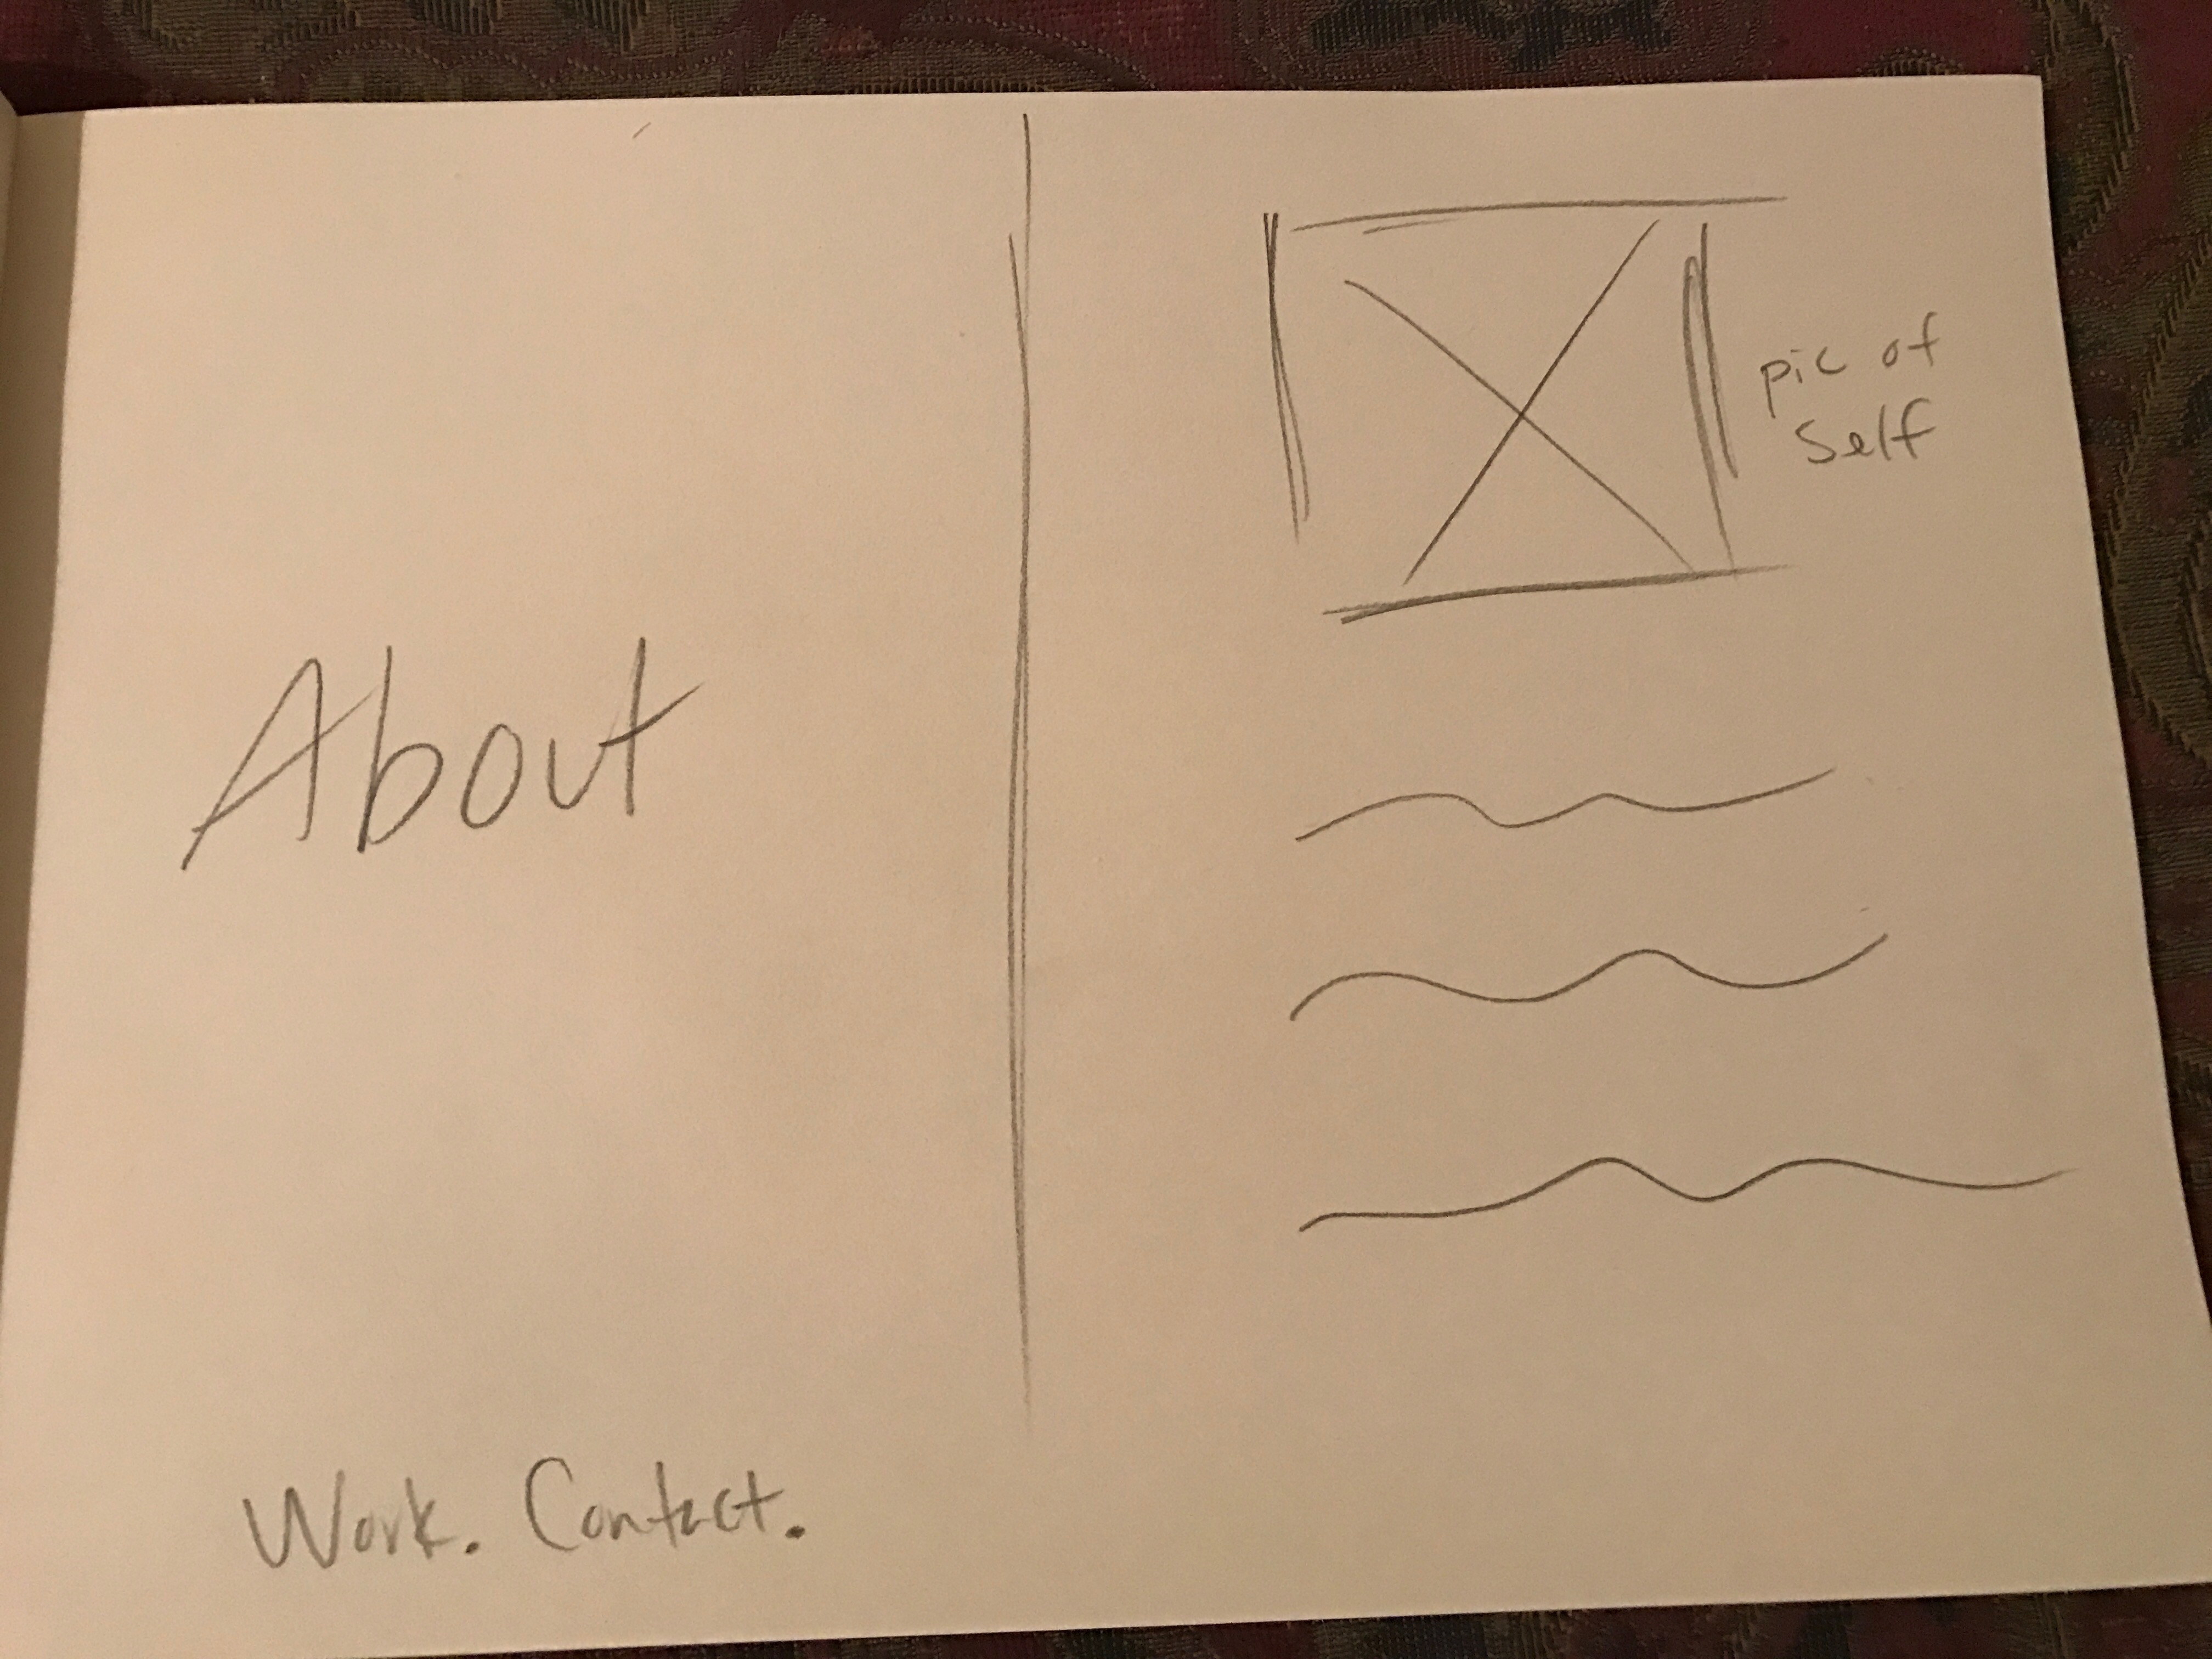 About
Work. Contact.
pic of
Self